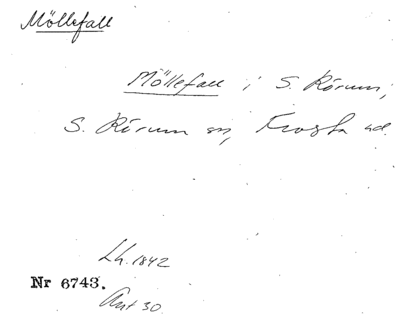 Möllefall
Möllefall i S. Rörum,
S. Rörum sn, Frosta hd.
Lh. 1842
Nr 6743.
Ant 30